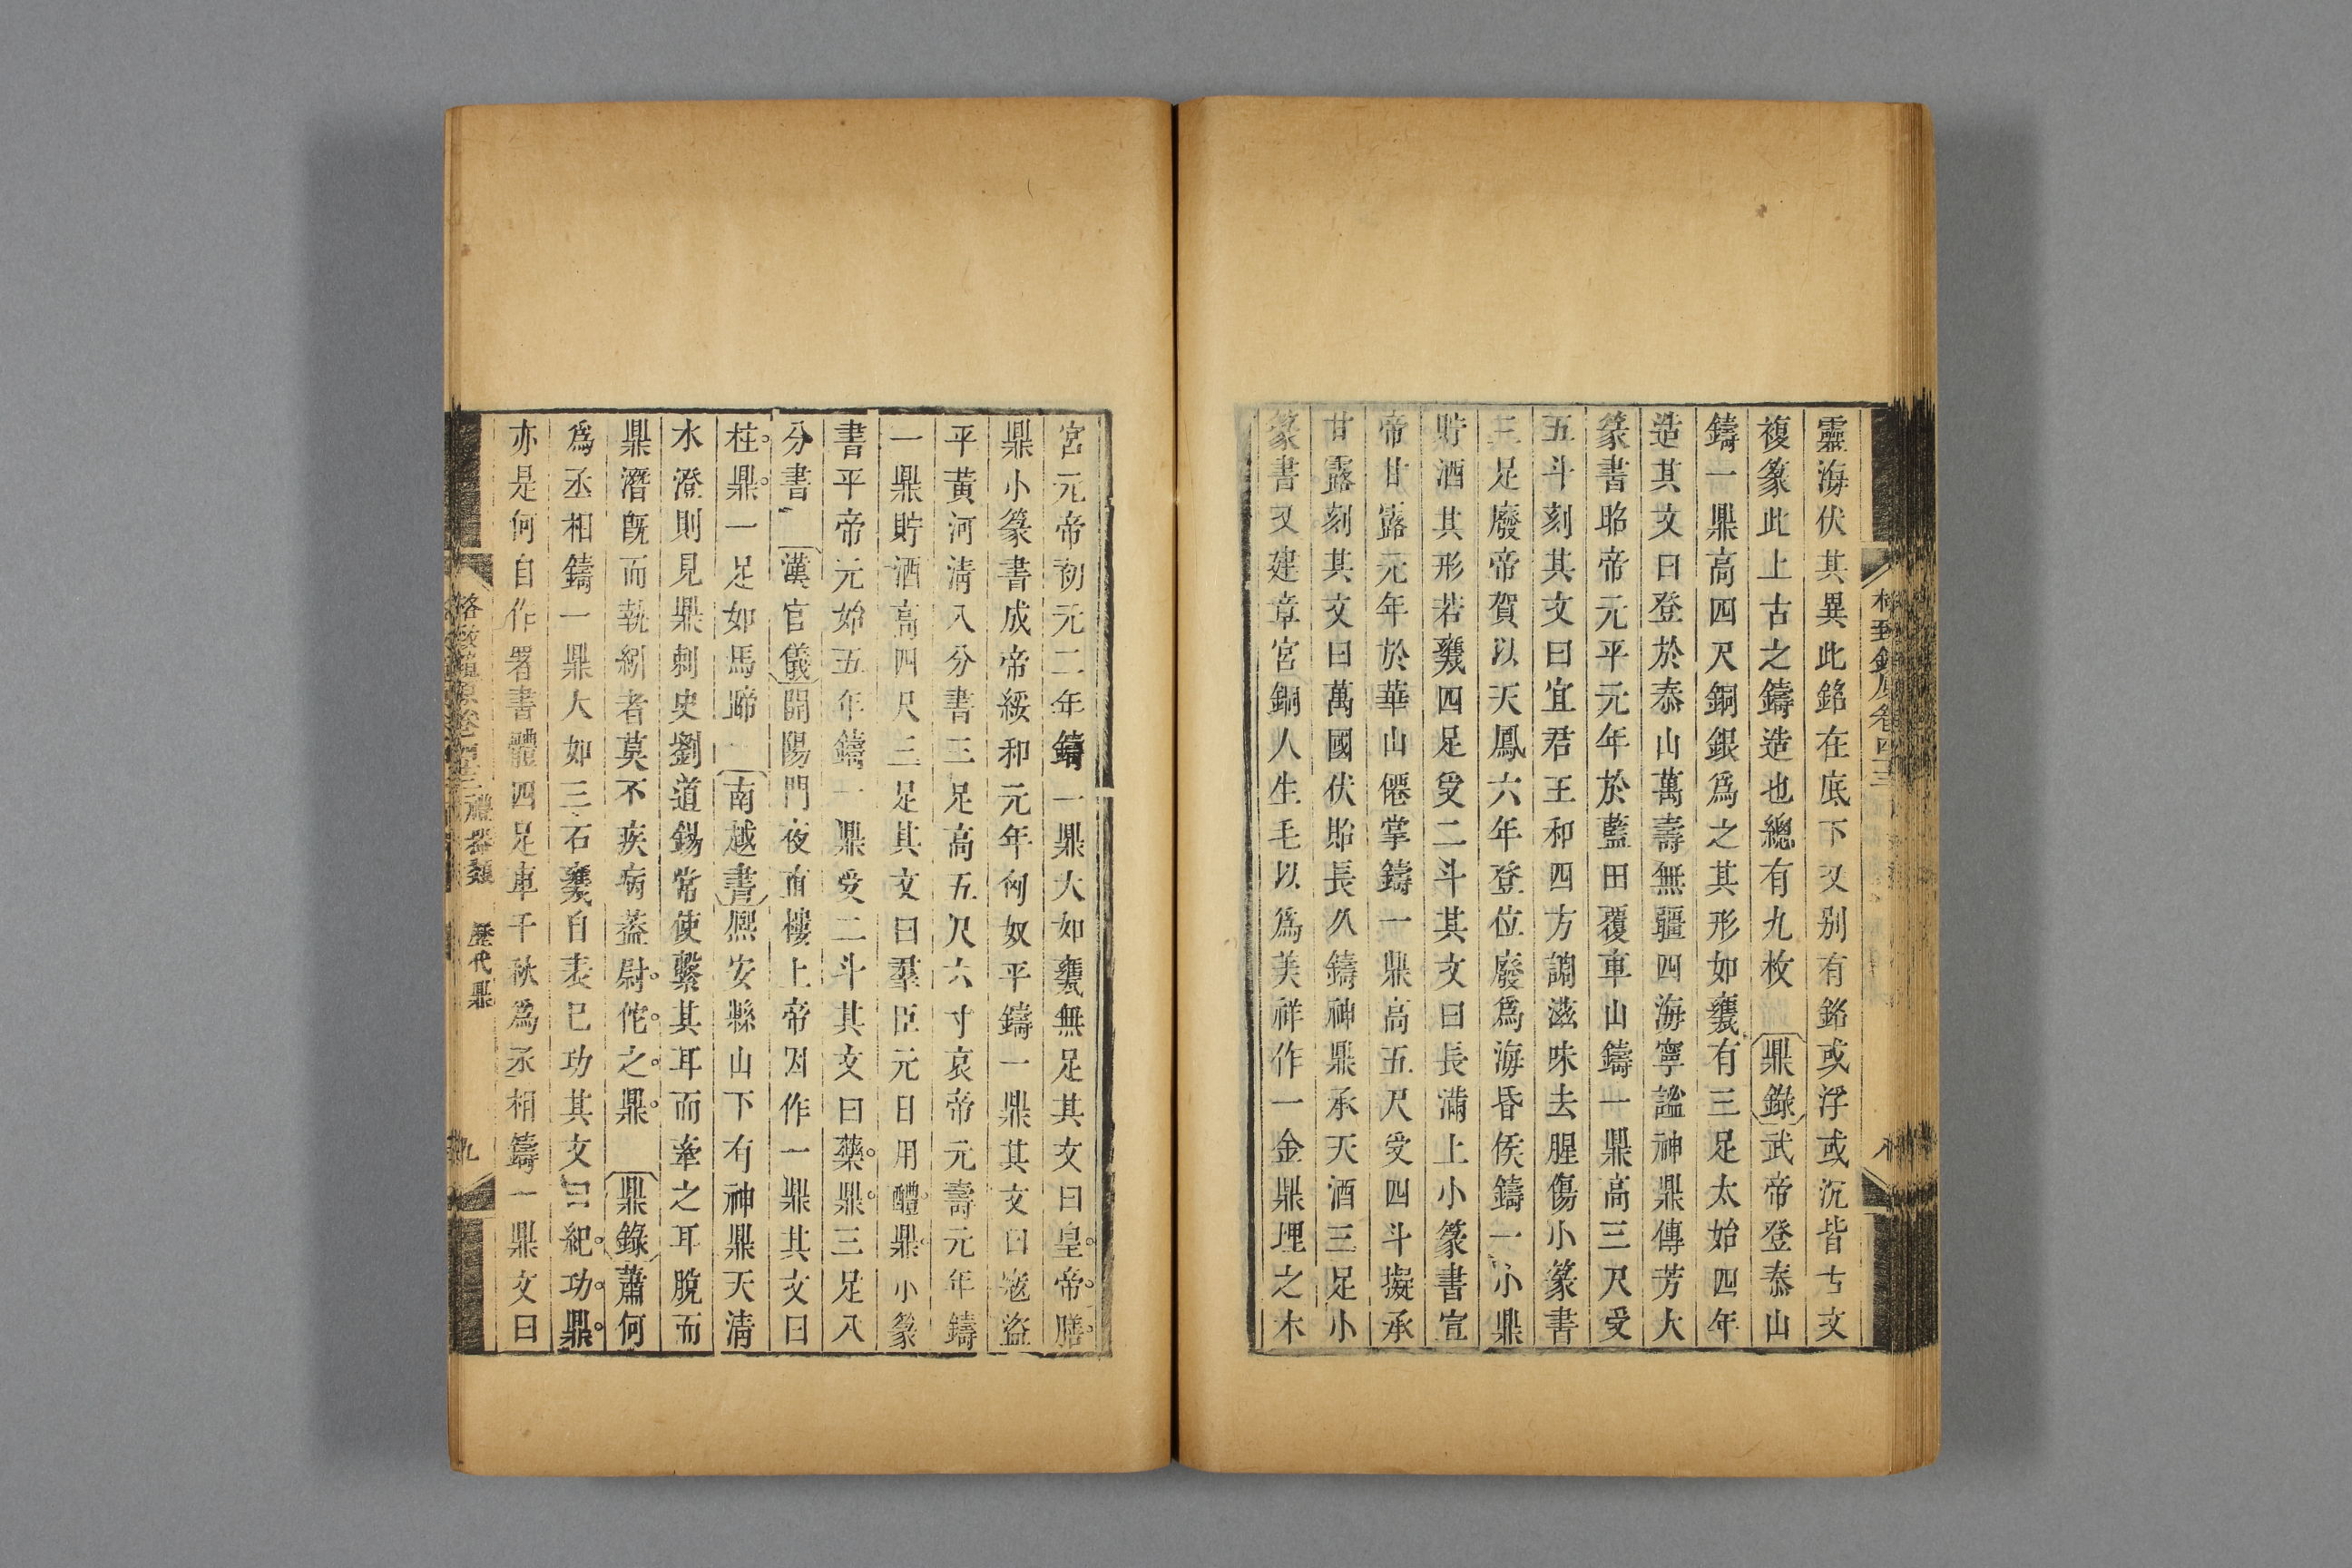 靈海伏其異此銘在底下又别有銘或浮或沉皆古文
複篆此上古之鑄造也總有九枚 鼎錄武帝登泰山
鑄一鼎高四尺銅銀爲之其形如甕有三足太始四年
造其文曰登於泰山萬壽無疆四海寧謐神鼎傳芳大
篆書昭帝元平元年於藍田覆車山鑄一鼎高三尺受
五斗刻其文曰宜君王和四方調滋味去腥傷小篆書
三足廢帝賀以天鳳六年登位廢爲海昏侯鑄一小鼎
貯酒其形若甕四足受二斗其文曰長滿上小篆書宣
帝甘露元年於華山僊掌鑄一鼎高五尺受四斗擬承
甘露刻其文曰萬國伏貽長久鑄神鼎承天酒三足小
篆書又建章宮銅人生毛以爲美祥作一金鼎埋之木
宮元帝初元二年鑄一鼎大如甕無足其文曰皇帝膳
鼎小篆書成帝綏和元年匈奴平鑄一鼎其文曰寇盜
平黃河清八分書三足高五尺六寸哀帝元壽元年鑄
一鼎貯酒高四尺三足其文曰羣臣元日用醴鼎小篆
書平帝元始五年鑄一鼎受二斗其文曰藥鼎三足八
分書 漢官儀開陽門夜直樓上帝因作一鼎其文曰
柱鼎一足如馬蹄 南越書熈安縣山下有神鼎天清
水澄則見鼎刺史劉道錫常使繫其耳而牽之耳脫而
鼎潛旣而執紖者莫不疾病葢尉佗之鼎 鼎錄蕭何
爲丞相鑄一鼎大如三石甕自表己功其文曰紀功鼎
亦是何自作署書體四足車千秋爲丞相鑄一鼎文曰
格致鏡原卷四十三 禮器類 歷代鼎 九